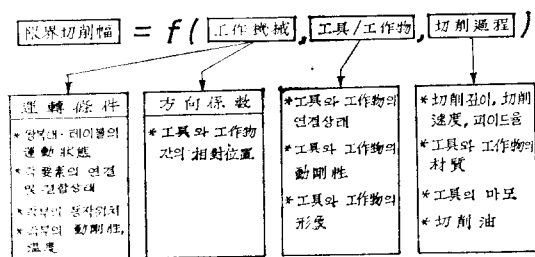 限界切削幅 = f(工作機械, 工具/工作物, 切削過程)
運轉條件
* 왕복대·테이블의
運動狀態
* 각 要素의 연결
및 결합상태
* 각부의 동작위치
* 각부의 動剛性,
溫度
方向係數
* 工具와 工作物
간의 相對位置
* 工具와 工作物의
연결상태
* 工具와 工作物의
動剛性
* 工具와 工作物의
形象
* 切削깊이, 切削
速度, 피이드율
* 工具와 工作物의
材質
* 工具의 마모
* 切削油